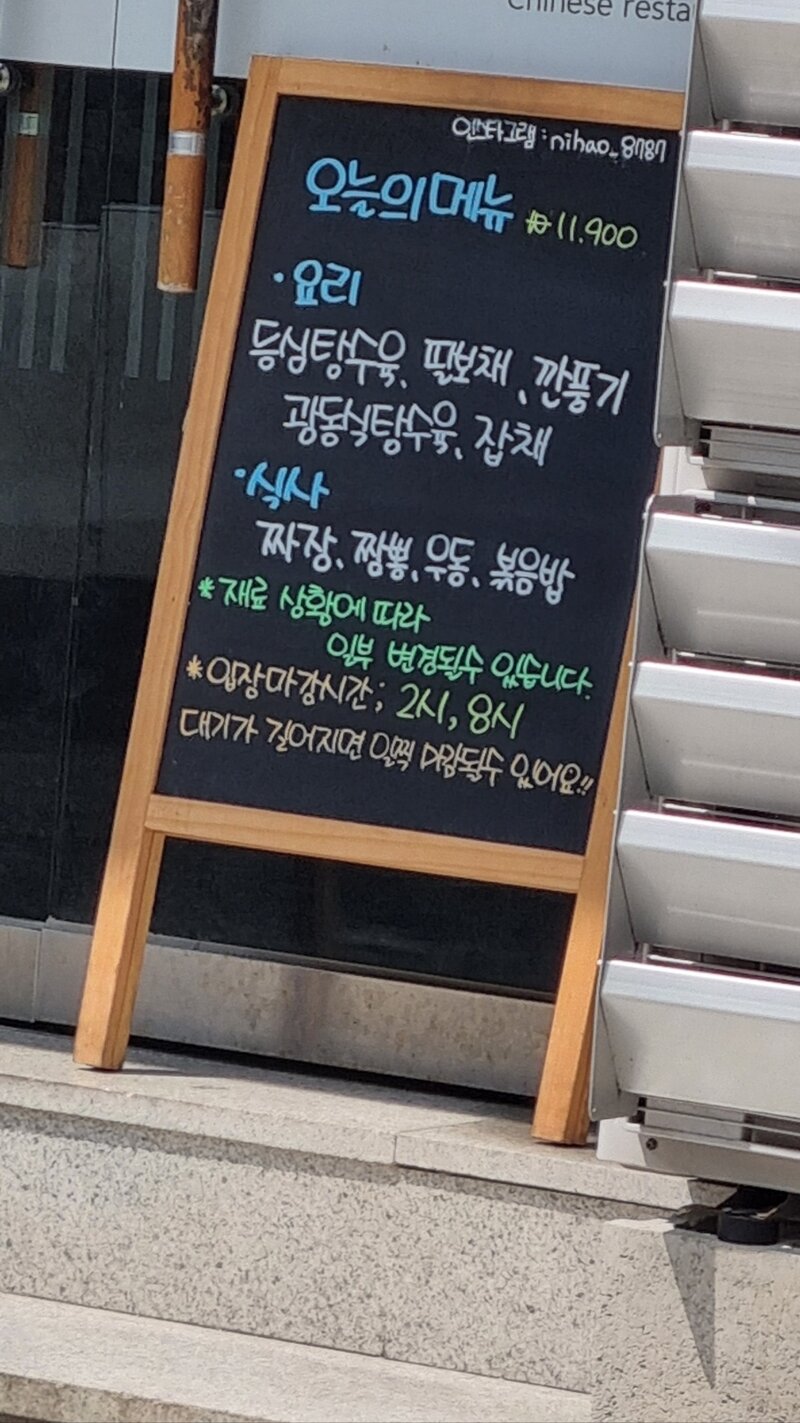 Chinese resta
인스타그램 : nihao_8787
오늘의메뉴 ₩11.900
· 요리
등심탕수육, 팔보채, 깐풍기
광동식탕수육, 잡채
· 식사
짜장, 짬뽕, 우동, 볶음밥
* 재료 상황에 따라
일부 변경될수 있습니다.
* 입장마감시간 ; 2시, 8시
대기가 길어지면 일찍 마감될수 있어요!!